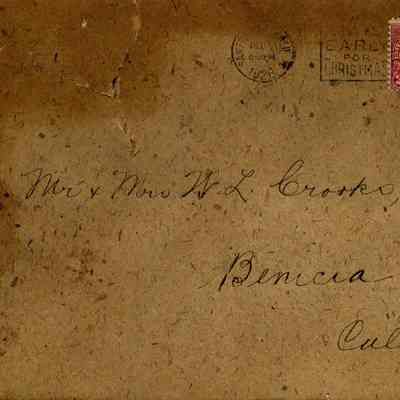 DEC
1926
EARLY
FOR
CHRISTMAS
Mr & Mrs W. L. Crooks,
Benicia
Cal